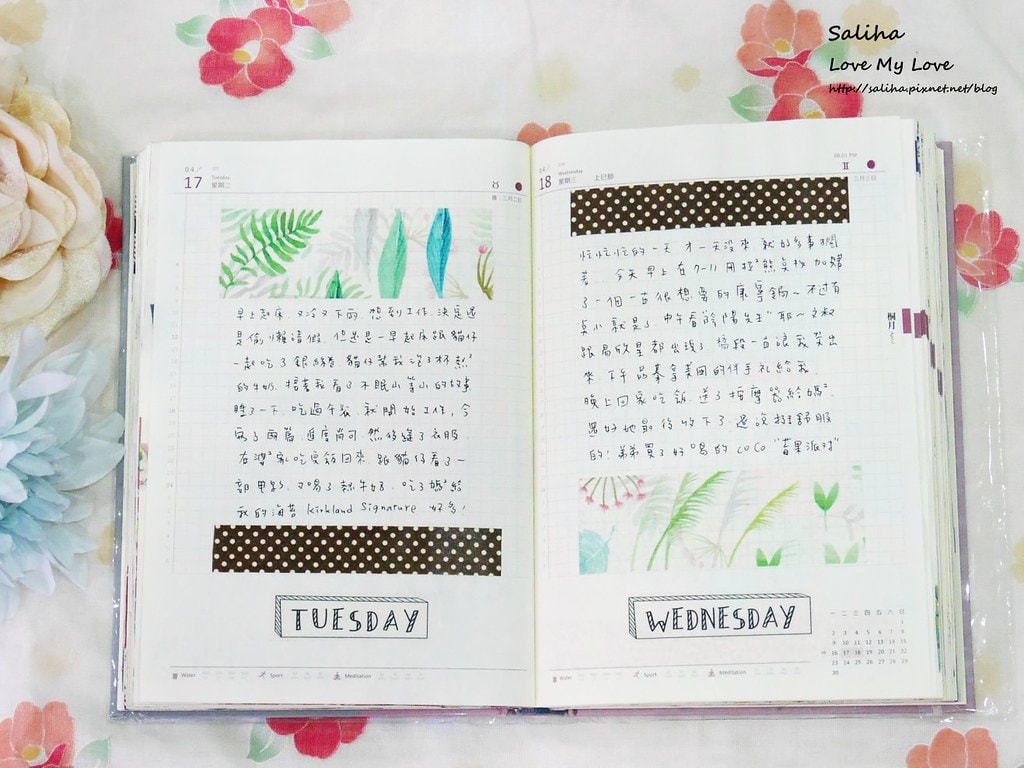 Saliha
Love My Love
http://saliha.pixnet.net/blog
04
17
Tuesday
星期二
三月初二
早上起床 又冷又下雨 想到工作 決定還
是偷懶請假 但還是一早起床跟貓仔
一起吃了銀絲卷 貓仔幫我泡了
的牛奶 接著我看了不眠山 的故事
睡了一下 吃過午餐 就開始工作, 今
寫了兩篇 進度尚可 然後縫了衣服
在 家吃完飯回來 跟貓仔看了一
部電影 又喝了 牛奶 吃了媽 給
我的海苔 Kirkland Signature 好多!
TUESDAY
Water
Sport
Meditation
04
18
Wednesday
星期三
上巳節
三月初三
忙忙忙的一天 才一天沒來 就好多事
著... 今天早上在7-11用拉 熊 加購
了一個一直很想要的康寧鍋~ 不過有
點小 就是了 中午看 先生" 耶~
跟 都出現了 一直讓我笑出
來 下午品蓁拿美國的伴手禮給我
晚上回家吃飯 送了按摩器給媽
還好她最後收下了 還說 舒服
的! 弟弟買了好喝的 coco "莓果派對"
WEDNESDAY
桐月
一 二 三 四 五 六 日
1
2 3 4 5 6 7 8
9 10 11 12 13 14 15
16 17 18 19 20 21 22
23 24 25 26 27 28 29
30
Water
Sport
Meditation